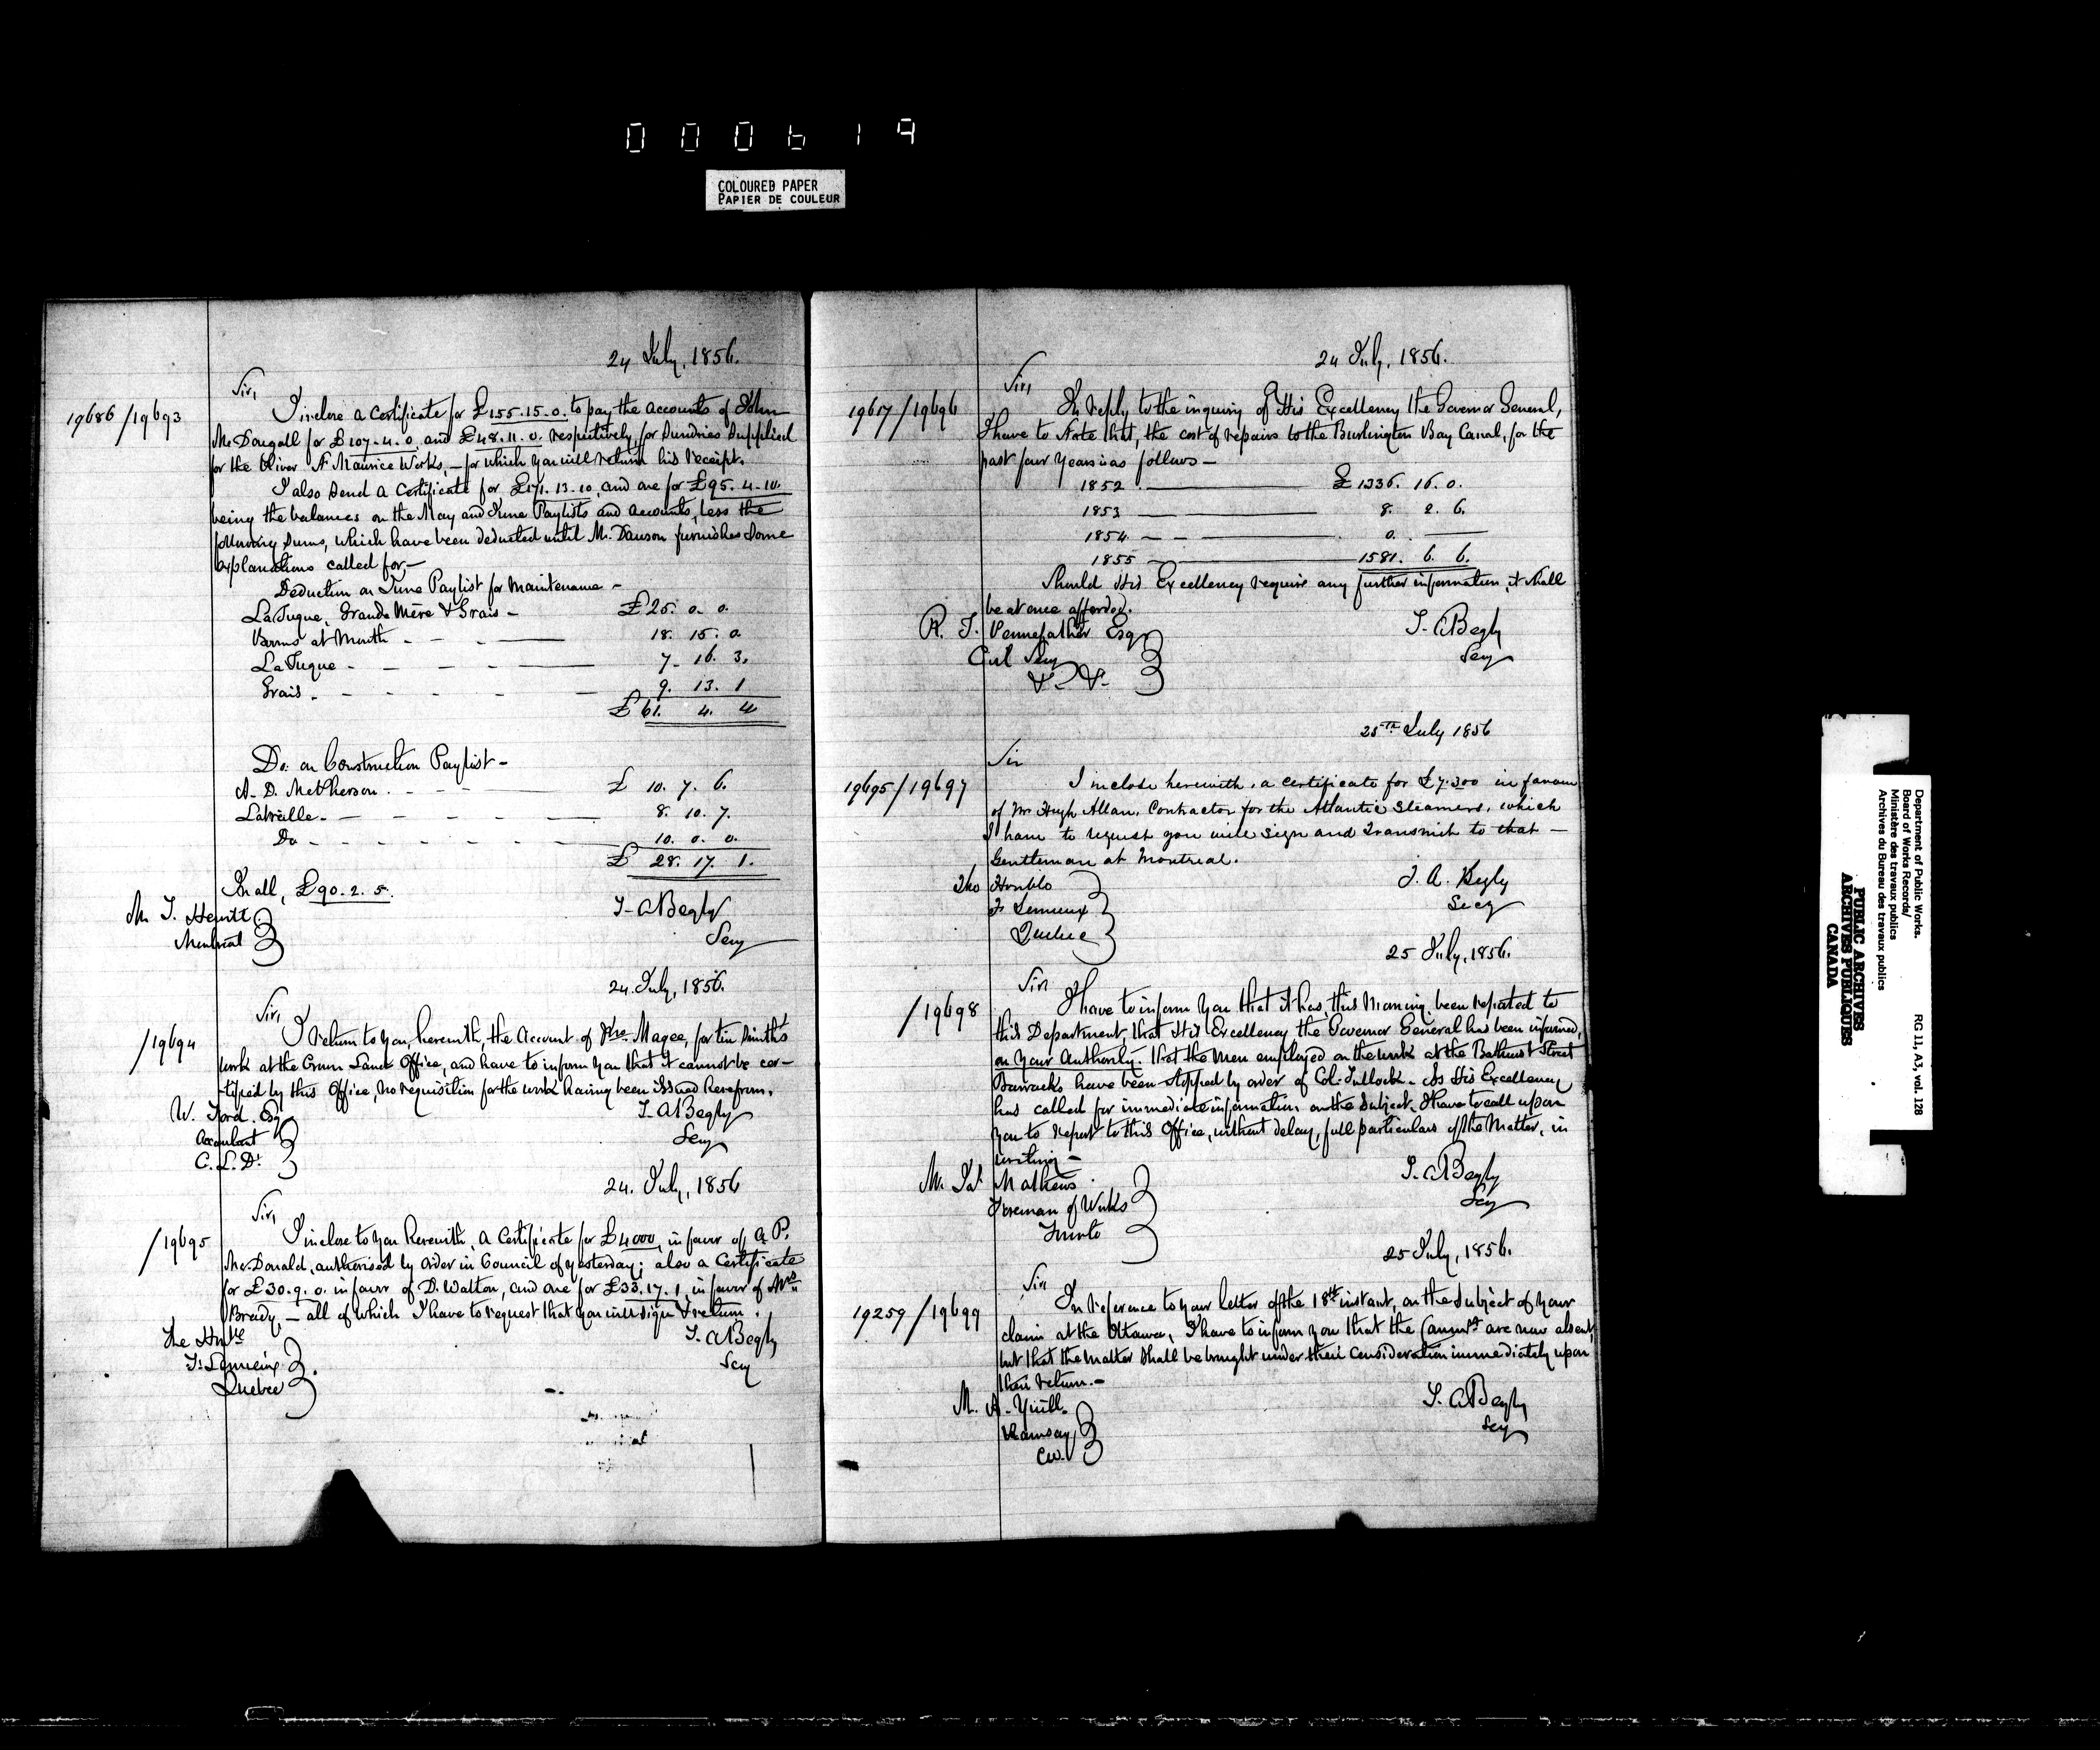 000619
COLOURED PAPER
PAPIER DE COULEUR
24 July, 1856.
Sir,
19686/19693
I inclose a Certificate for £155.15.0. to pay the accounts of John
McDougall for £107.4.0. and £48.11.0. respectively, for Sundries Supplied
for the River St Maurice Works, – for which you will return his receipt.
I also Send a Certificate for £171.13.10, and one for £95.4.10.
being the balances on the May and June Paylists and accounts, less the
following Sums, which have been deducted until Mr. Dawson furnishes Some
explanations called for, –
Deduction on June Paylist for Maintenance –
La Tuque, Grande Mère & Grais – £25. 0. 0.
Booms at Mouth - - - 18. 15. 0
La Tuque - - - 7. 16. 3,
Grais. - - - 9. 13. 1
£61. 4. 4
Do. on Construction Paylist –
A. D. McPherson. - - - £ 10. 7. 6.
Latreille - - - 8. 10. 7.
Do - - - 10. 0. 0.
£ 28. 17. 1.
In all, £90.2.5.
Mr J. Hewitt
Montreal
T. A Begly
Secy
24. July, 1856.
Sir,
/19694
I return to you, herewith, the Account of Magee, for tin Smith's
work at the Crown Land Office, and have to inform you that it cannot be cer-
-tified by this Office, no requisition for the work having been issued herefrom.
W. Ford. Esq
Accountant
C. L. Dt.
T. A Begly
Secy
24. July, 1856
Sir,
/19695
I inclose to you Herewith, a Certificate for £4000, in favor of A. P.
McDonald, authorised by Order in Council of yesterday; also a Certificate
for £30.9.0. in favor of D. Walton, and one for £33.17.1 in favor of Mrs
Bready, – all of which I have to request that you will sign & return.
The Honble
F. Lemieux
Quebec
T. A Begly
Secy
24 July, 1856.
Sir,
19617/19696
In reply to the inquiry of His Excellency the Governor General,
I have to State that, the cost of repairs to the Burlington Bay Canal, for the
past four years is as follows –
1852 — £1336. 16. 0.
1853 — 8. 2. 6.
1854 — 0. —
1855 — 1581. 6. 6.
Should His Excellency require any further information, it shall
be at once afforded.
R. T. Pennefather Esq
Civil Secy
&c &c
T. A Begly
Secy
25th July 1856
Sir
19695/19697
I inclose herewith, a certificate for £7.300 in favour
of Mr Hugh Allan, Contractor for the Atlantic Steamers, which
I have to request you will sign and transmit to that –
Gentleman at Montreal.
The Honble
F Lemieux
Quebec
T. A. Begly
Secy
25 July, 1856.
Sir
/19698
I have to inform you that it has, this Morning, been reported to
this Department, that His Excellency the Governor General has been informed,
on your Authority, that the men employed on the work at the Bathurst Street
Barracks have been stopped by order of Col. Tullock – As His Excellency
has called for immediate information on the Subject, I have to call upon
you to report to this Office, without delay, full particulars of the Matter, in
writing –
Mr. Jas Mathews
Foreman of Works
Toronto
T. A Begly
Secy
25 July, 1856.
Sir
19259/19699
In reference to your letter of the 18th instant, on the Subject of your
claim at the Ottawa, I have to inform you that the are now absent,
but that the matter Shall be brought under their Consideration immediately upon
their return. –
M. A. Yuill.
Ramsay
CW.
T. A Begly
Secy
Department of Public Works.
Board of Works Records/
Ministère des travaux publics
Archives du Bureau des travaux publics
RG 11, A3, vol. 128
PUBLIC ARCHIVES
ARCHIVES PUBLIQUES
CANADA